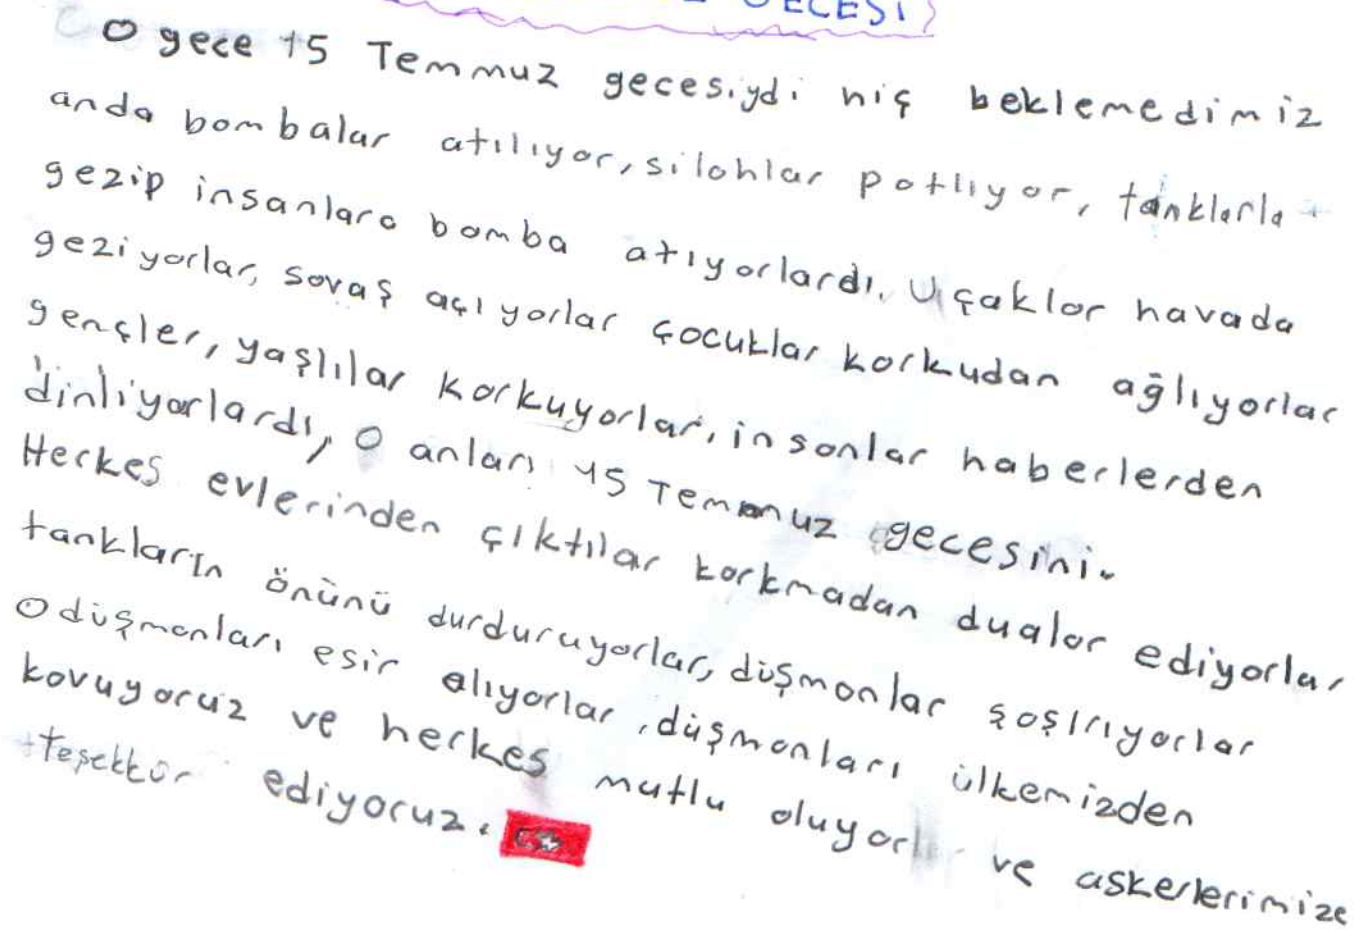 GECESİ
O gece 15 Temmuz gecesiydi hiç beklemedimiz
anda bombalar atılıyor, silahlar patlıyor, tanklarla
gezip insanlara bomba atıyorlardı. Uçaklar havada
geziyorlar, savaş açıyorlar çocuklar korkudan ağlıyorlar
gençler, yaşlılar korkuyorlar, insanlar haberlerden
dinliyorlardı, o anları 15 Temmuz gecesini.
Herkes evlerinden çıktılar korkmadan dualar ediyorlar
tankların önünü durduruyorlar, düşmanlar şaşırıyorlar
O düşmanları esir alıyorlar, düşmanları ülkemizden
kovuyoruz ve herkes mutlu oluyorlar ve askerlerimize
teşekkür ediyoruz.